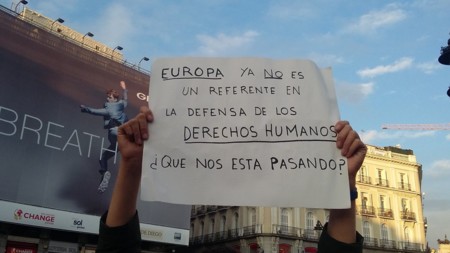 EUROPA YA NO ES
UN REFERENTE EN
LA DEFENSA DE LOS
DERECHOS HUMANOS
¿QUE NOS ESTA PASANDO?
BREATH
CHANGE
sol